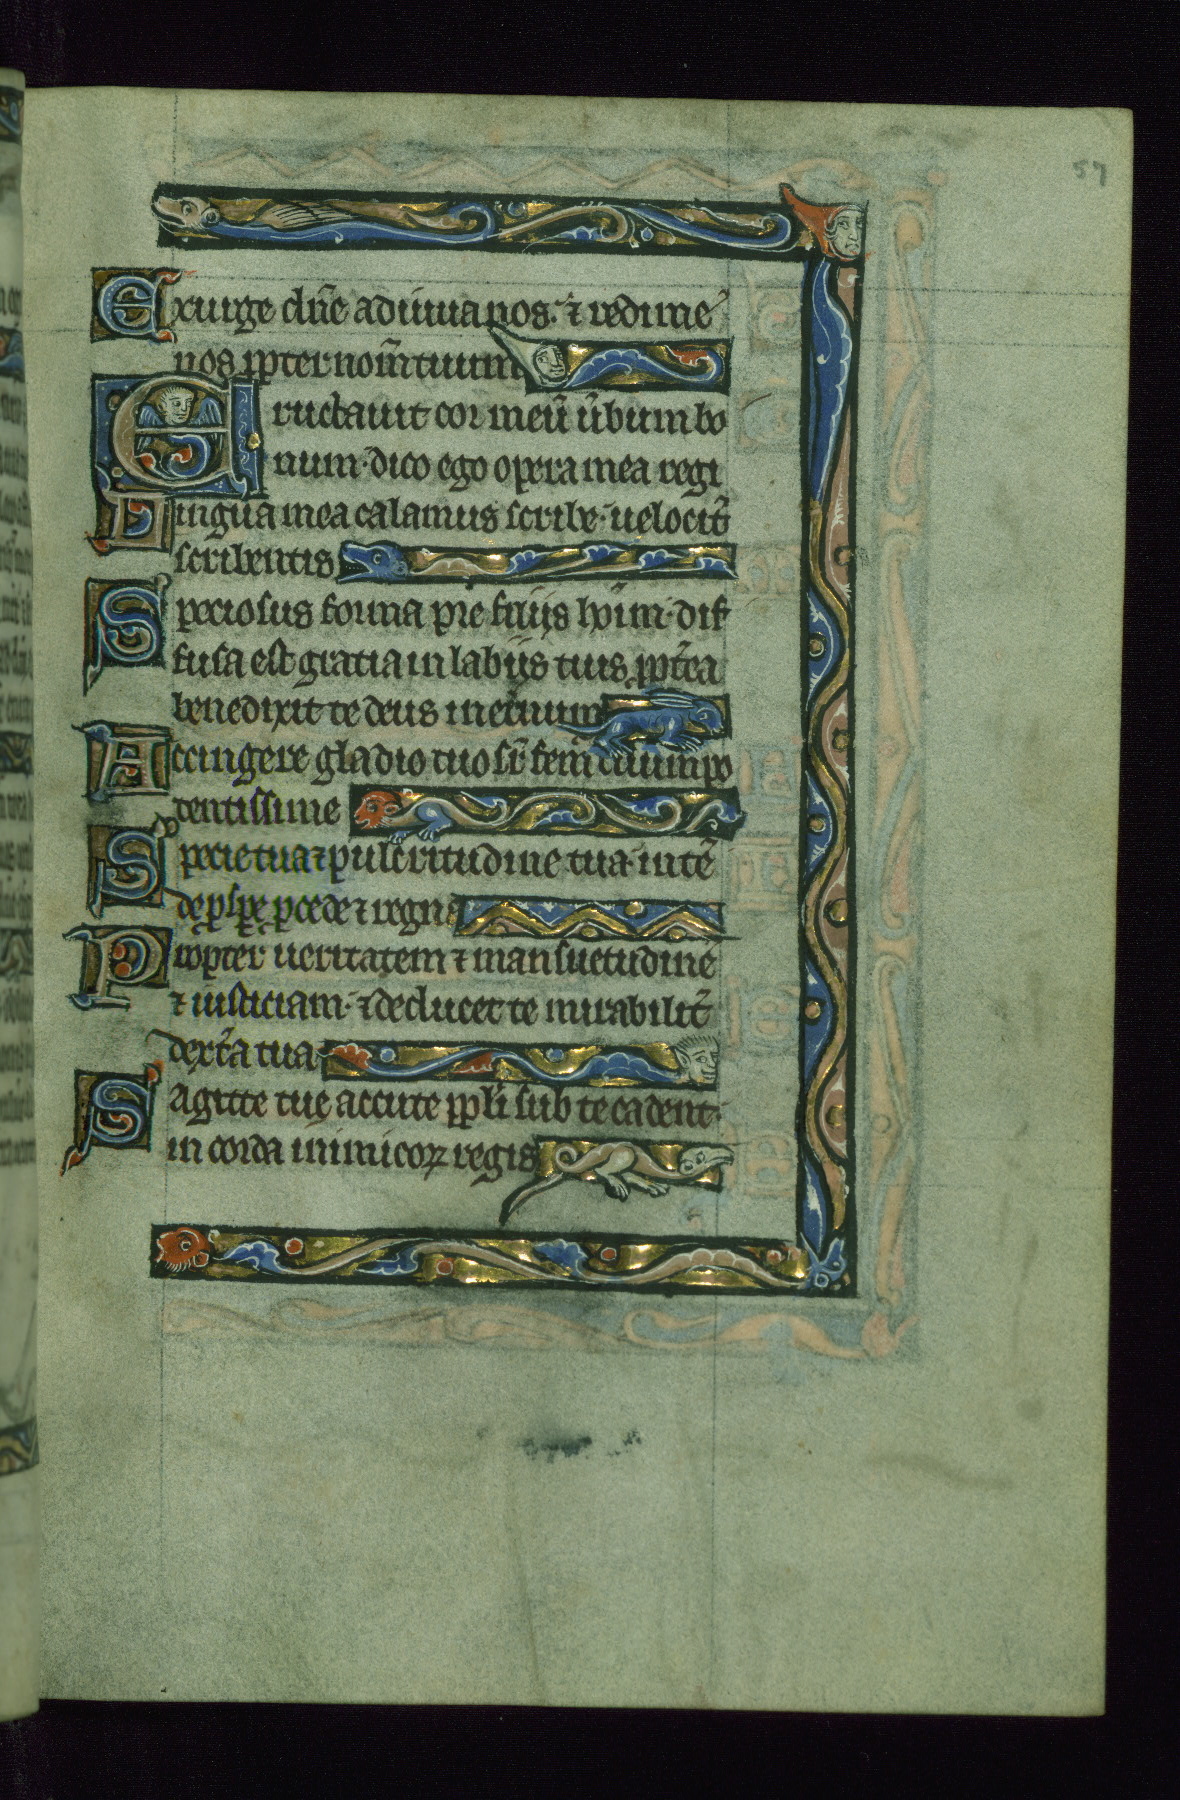 57
Exurge dn̄e adiuua nos. ⁊ redime
nos ꝓpter nom̄ tuum
Eructauit cor meū ūbum bo
num. dico ego oꝑa mea regi
Lingua mea calamus scribe. uelocit᷑
scribentis
Speciosus forma pre filijs hoīm. dif
fusa est gratia in labijs tuis ꝓpt᷑ea
benedixit te deus in et̄num
Accingere gladio tuo sr̄ fem̄ tuum po
tentissime
Specie tua ⁊ pulcritudine tua intē
de ꝓspe ꝓcede ⁊ regna
Propter ueritatem ⁊ mansuetudinē
⁊ iusticiam. ⁊ deducet te mirabilit᷑
dext᷑a tua
Sagitte tuę accute ppl̄i sub te cadent.
in corda inimicoꝝ regis